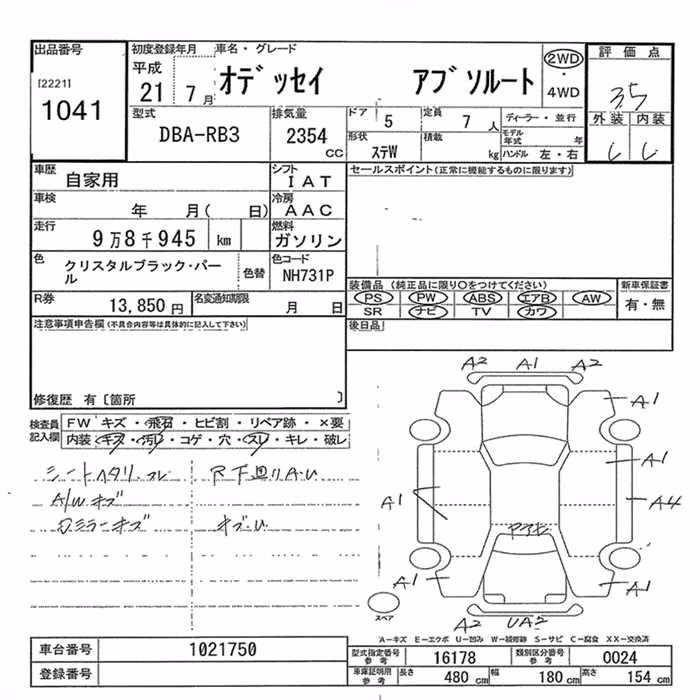 出品番号
[2221]
1041
初度登録年月
平成
21 7月
車名・グレード
オデッセイ アブソルート
2WD
・
4WD
評価点
35
外装 内装
型式
DBA-RB3
排気量
2354
CC
ドア
5
定員
7人
ディーラー・並行
モデル年式 年
形状
ステW
積載
kg
ハンドル 左・右
車歴
自家用
シフト
IAT
車検
年 月( 日)
冷房
AAC
走行
9万8千945 km
燃料
ガソリン
色
クリスタルブラック・パール
色替
色コード
NH731P
R券
13,850円
名変通知期限
月 日
セールスポイント(正常に機能するものに限ります)
装備品 (純正品に限り〇をつけてください)
PS PW ABS エアB AW
SR ナビ TV カワ
新車保証書
有・無
後日品
注意事項申告欄(不具合内容等は具体的に記入して下さい)
修復歴 有〔箇所 〕
検査員
記入欄
FW キズ・飛石・ヒビ割・リペア跡・×要
内装 キズ・汚れ・コゲ・穴・スレ・キレ・破レ
シートヘタリ.スレ
A/W キズ
R下廻りA.U
キズ.U
A2 A1 A2
A1
A1
A1
A4
A1
A1
A2
UA2
スペア
A-キズ E-エクボ U-凹み W-補修跡 S-サビ C-腐食 XX-交換済
車台番号
1021750
登録番号
型式指定番号
参考
16178
類別区分番号
参考
0024
車庫証明用
参考
長さ
480cm
幅
180cm
高さ
154cm